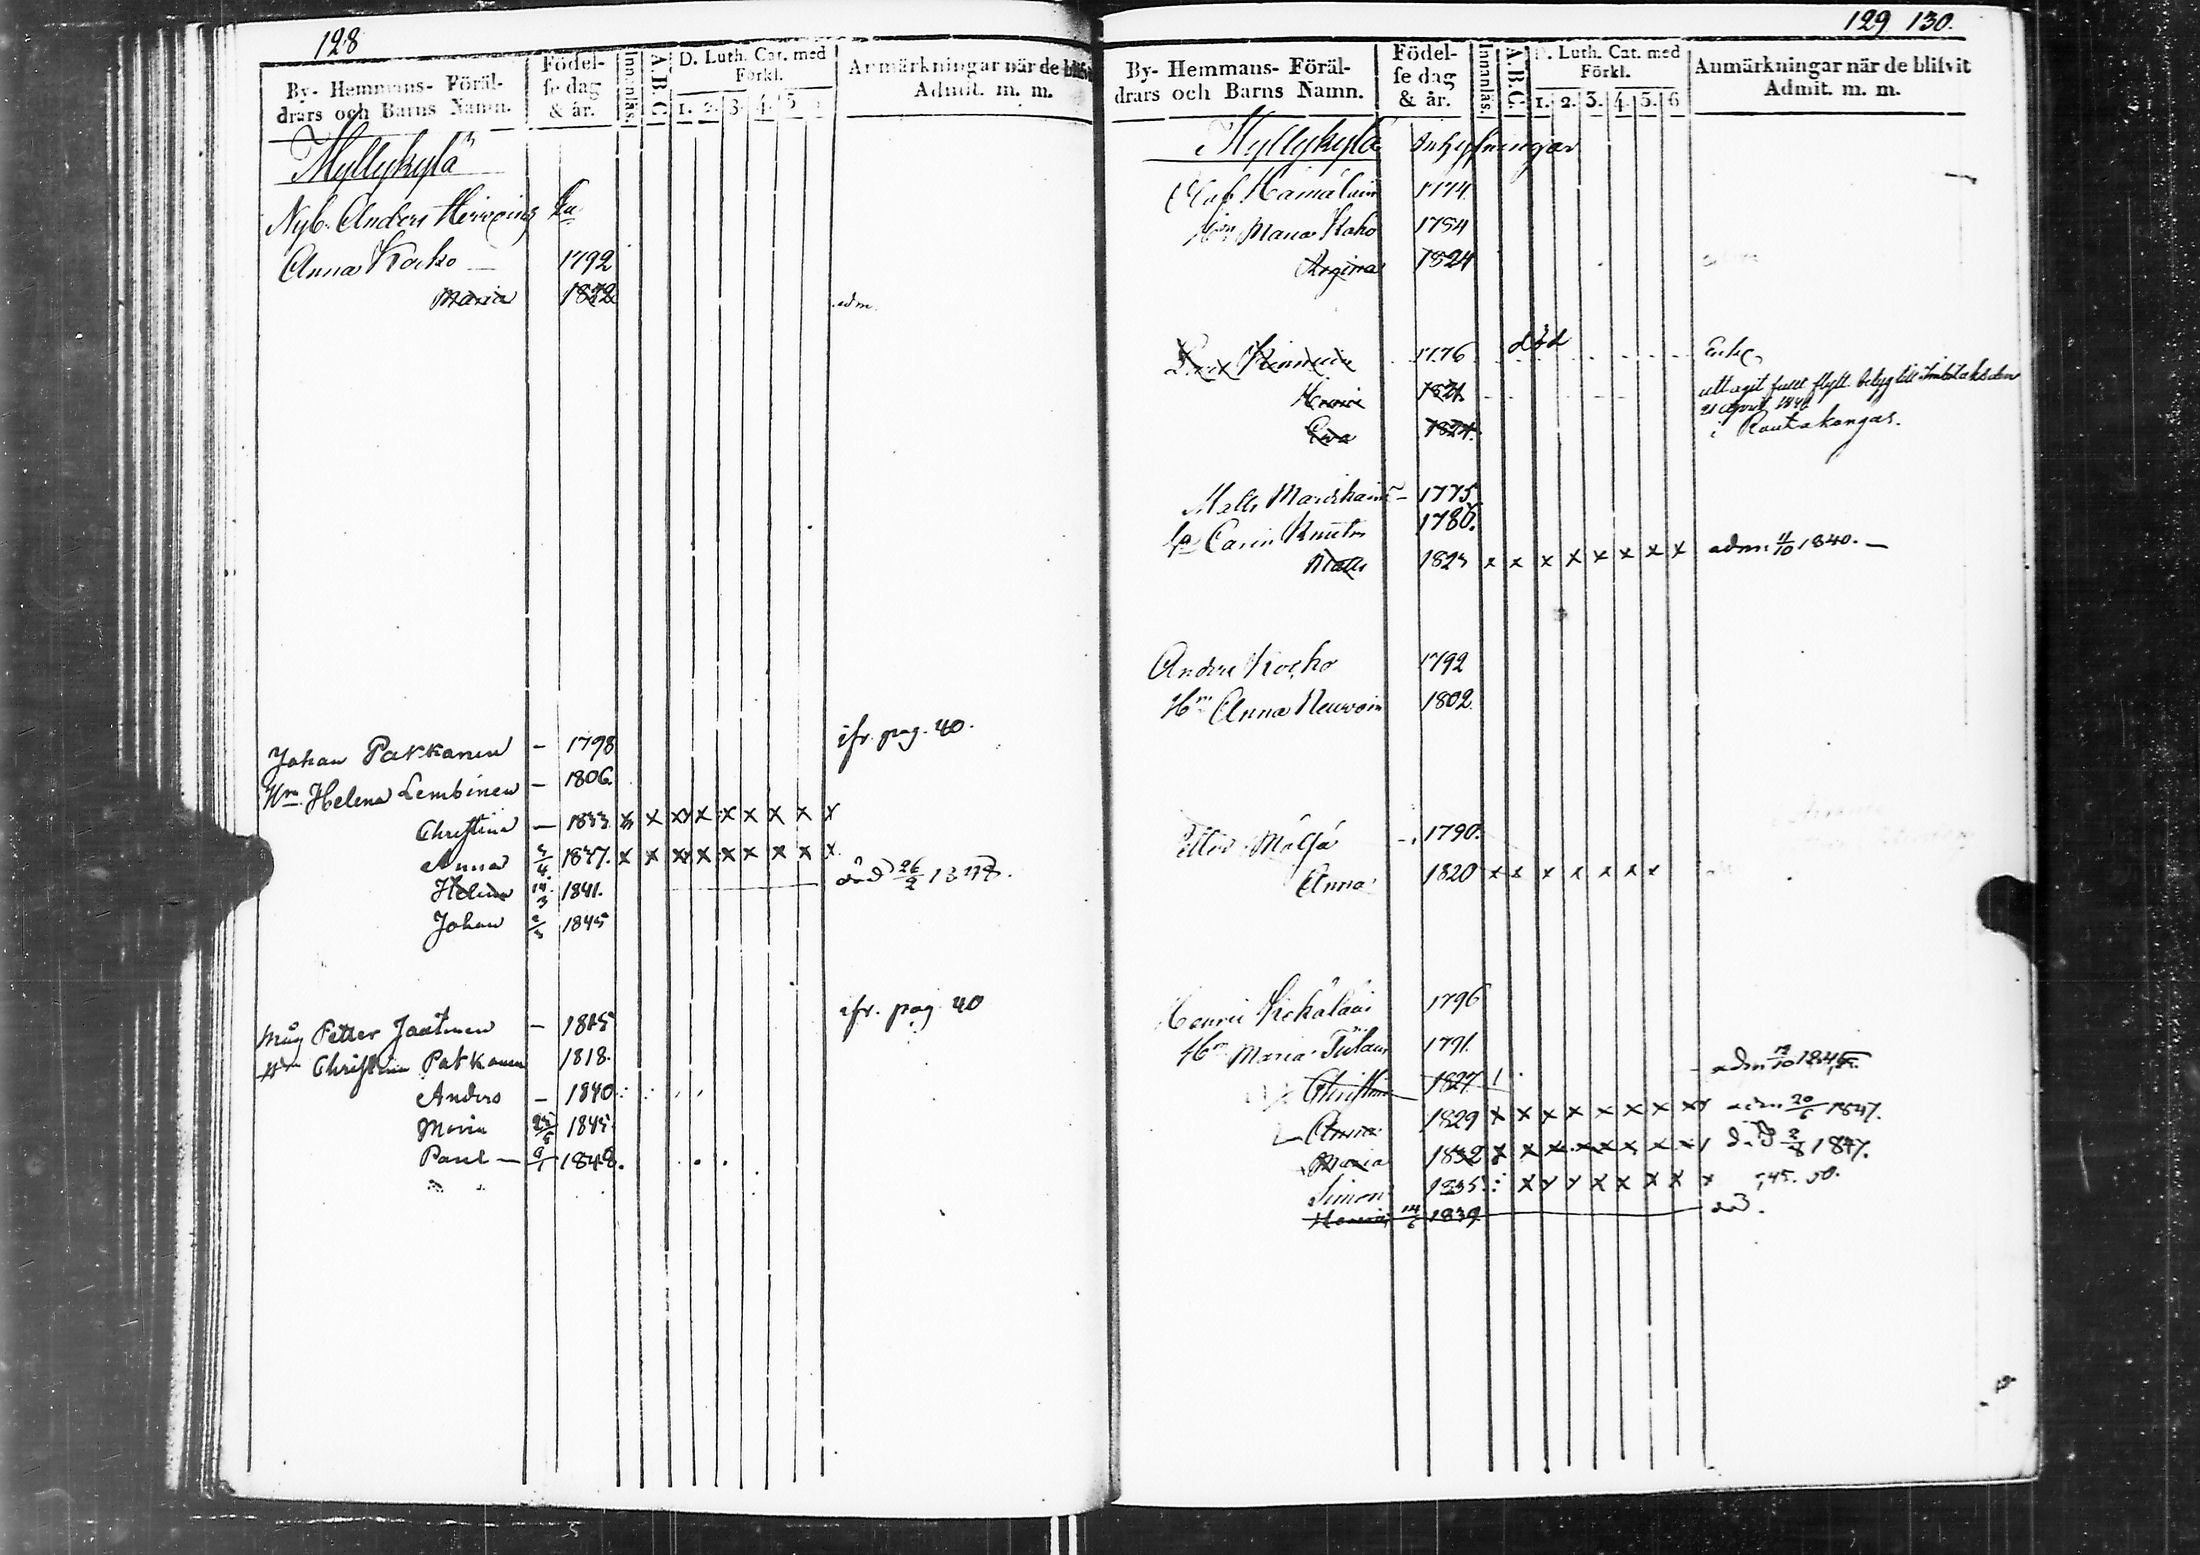 128
By- Hemmans- Föräl-
drars och Barns Namn.
Födel-
se dag
& år.
Innanläs.
A.B.C.
D. Luth. Cat. med
Förkl.
1. 2. 3. 4. 5
Anmärkningar när de blifvit
Admit. m. m.
Myllykylä
Nyb. Anders
Anna Kocko — 1792
Maria 1822 adm.
Johan Pakkanen – 1798 ifr. pag. 40.
Hm Helena Lembinen – 1806
Christina — 1833 x x x x x x x x x
Anna 1837. x x x x x x x x x
Helena 14/3 1841. död 26/2
Johan 1845
Måg Petter Jaatinen – 1815 ifr. pag 40
Hm Christina Pakkanen 1818.
Anders – 1840
Maria 1845
Paul — 1848.
129 130.
By- Hemmans- Föräl-
drars och Barns Namn.
Födel-
se dag
& år.
Innanläs.
A.B.C.
D. Luth. Cat. med
Förkl.
1. 2. 3. 4. 5. 6
Anmärkningar när de blifvit
Admit. m. m.
Myllykylä Inhysningar
Hämäläin 1774.
Hm Maria Koho 1784
Regina 1824
1776 död Enka
Henric 1821. uttagit flytt betyg till
Ewa 1824. 21 April 1846
i Rautakangas.
Matts 1775
Carin 1786.
Matts 1823 x x x x x x x x adm. 11/10 1840. —
Anders Kocko 1792
Hm Anna Neuvoin 1802
Petter 1790.
Anna 1820 x x x x x x x
Henric 1796
Hm Maria 1791.
Christina 1827 adm 1845.
Anna 1829 x x x x x x x x adm 20/6 1847.
Maria 1832 x x x x x x x x död 1847.
Simon 1835 x x x x x x x x 45. 50.
Henric 14/6 1839 död.